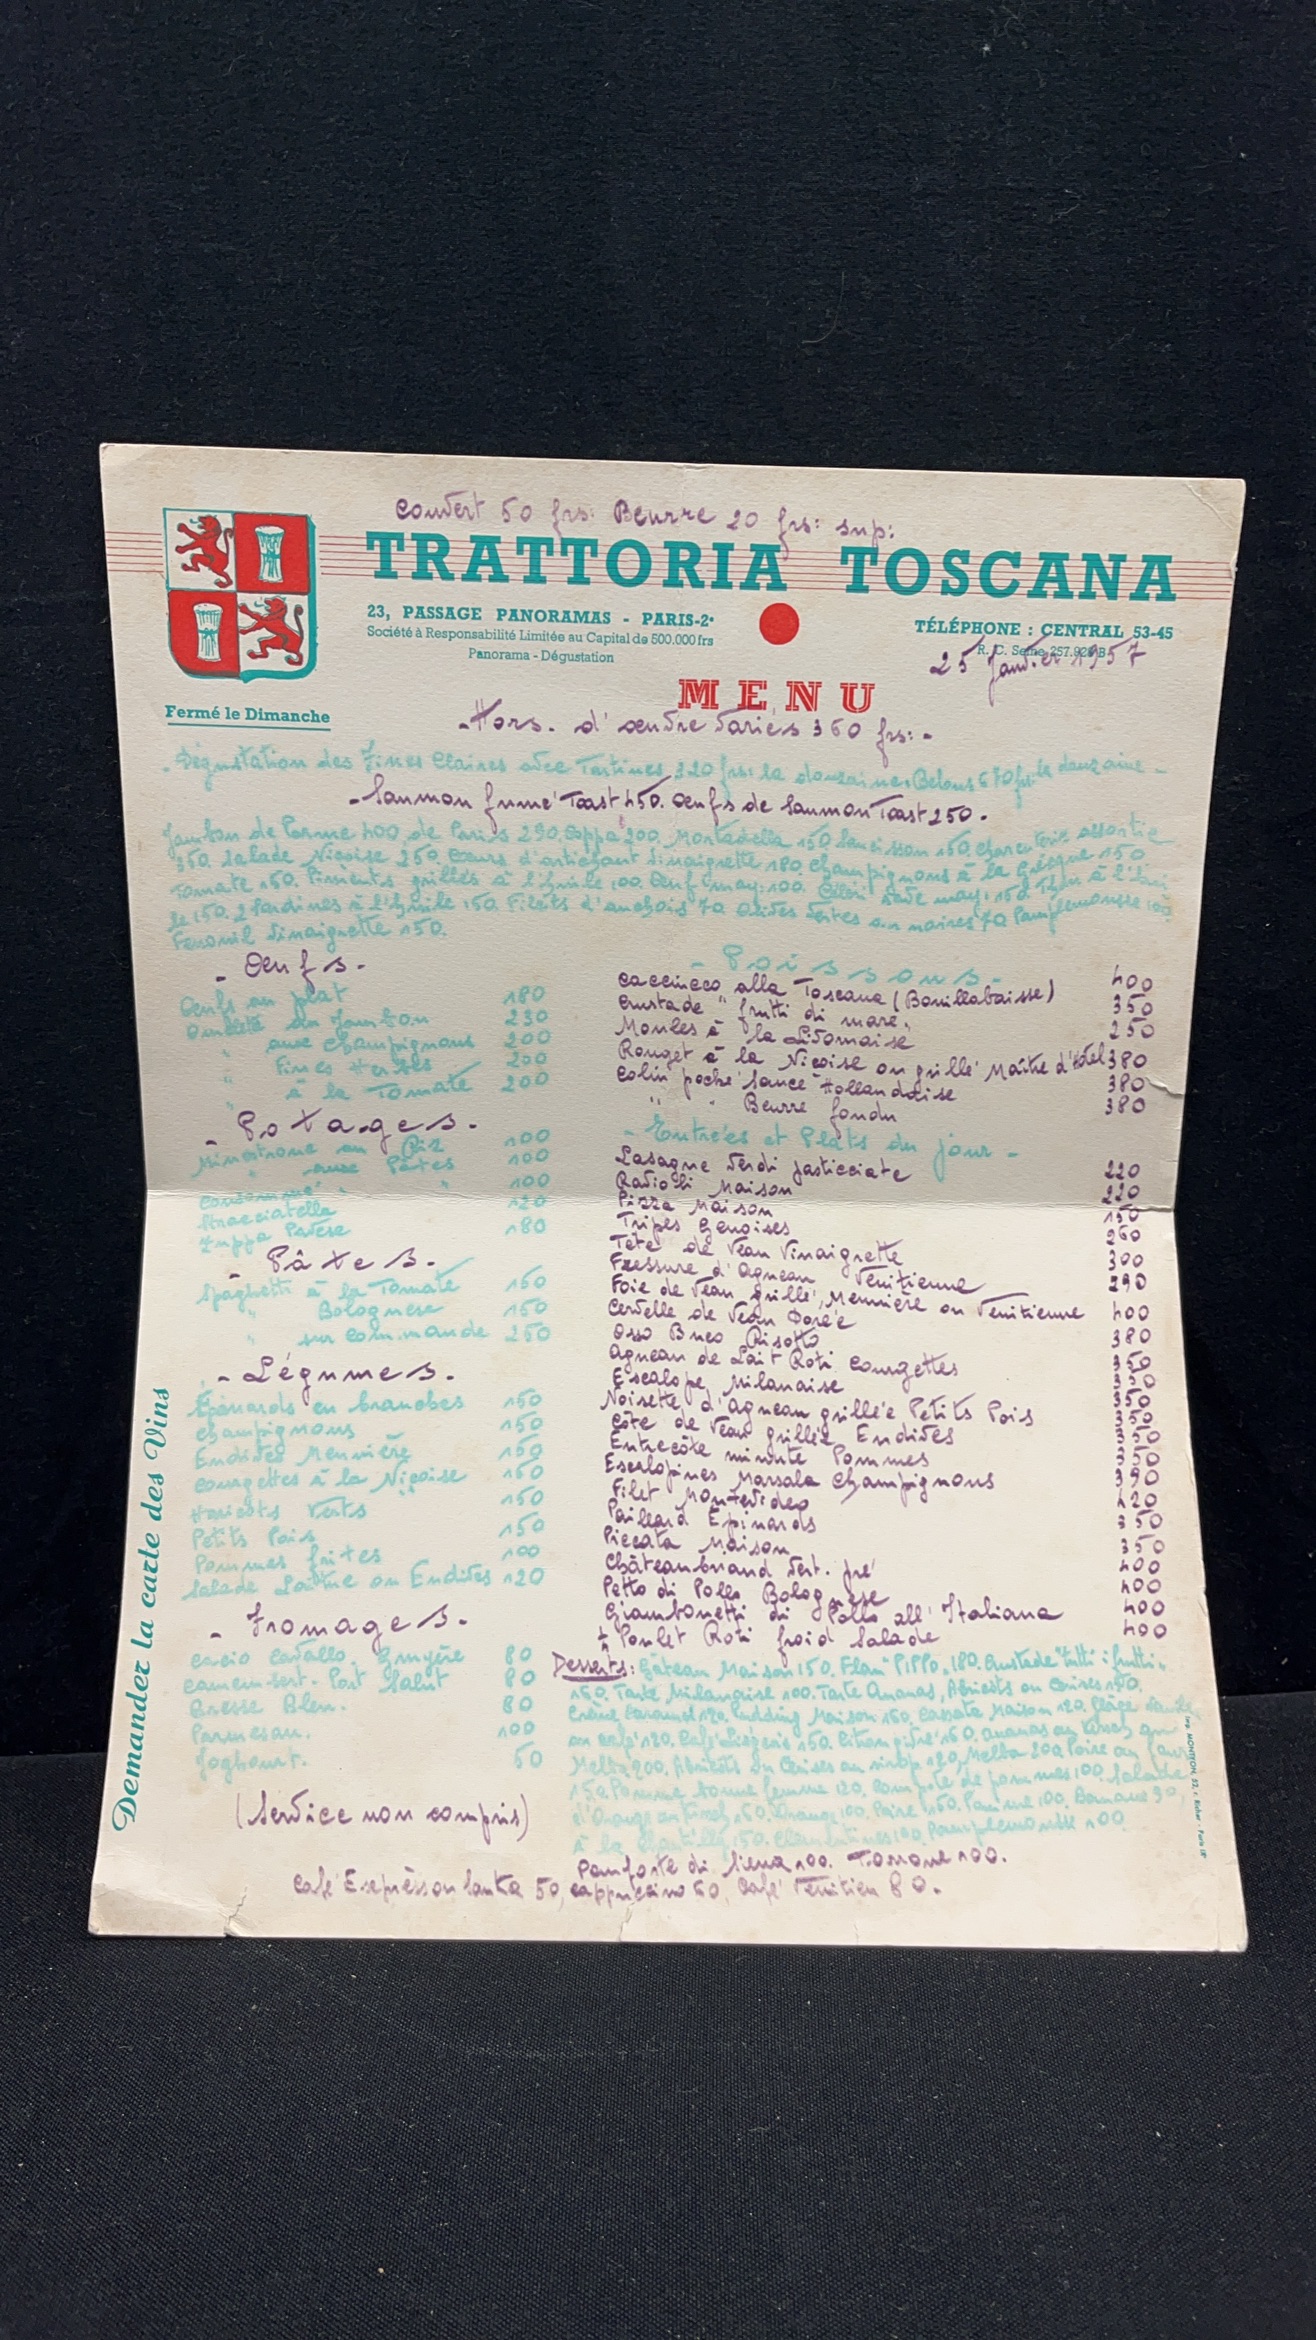 Couvert 50 frs: Beurre 20 frs: sup:
TRATTORIA TOSCANA
23, PASSAGE PANORAMAS - PARIS-2e
Société à Responsabilité Limitée au Capital de 500.000 frs
Panorama - Dégustation
TÉLÉPHONE : CENTRAL 53-45
R. C. Seine 257.928 B
25 Janvier 1957
MENU
Fermé le Dimanche
- Hors. d'œuvre variés 360 frs: -
- Dégustation des Fines Claires avec Tartines 320 frs: la douzaine. Belons 670 frs: la douzaine -
- Saumon fumé Toast 450. Œufs de Saumon Toast 250 -
Jambon de Parme 400, de Paris 290, Coppa 200, Mortadella 150 Saucisson 150, Charcuterie assortie
350. Salade Niçoise 250. Cœurs d'artichaut Vinaigrette 180. Champignons à la Grecque 150
Tomate 150. Piments grillés à l'huile 100. Œuf may: 100. Céleri rave may: 150 Thon à l'hui
le 150. 2 Sardines à l'huile 150. Filets d'anchois 70 Olives vertes ou noires 70 Pamplemousse 100
Fenouil Vinaigrette 150.
- Œufs -
Œufs au plat 180
Omelette au Jambon 230
" aux champignons 200
" Fines Herbes 200
" à la Tomate 200
- Potages -
Minestrone au Riz 100
" aux Pâtes 100
Consommé " " 100
Stracciatella 120
Zuppa Pavese 180
- Pâtes -
Spaghetti à la Tomate 150
" Bolognese 160
" sur commande 250
- Légumes -
Epinards en branches 150
Champignons 150
Endives Meunière 150
Courgettes à la Niçoise 160
Haricots Verts 150
Petits Pois 150
Pommes frites 100
Salade Laitue ou Endives 120
- Fromages -
Cacio Cavallo. Gruyère 80
Camembert. Port Salut 80
Bresse Bleu. 80
Parmesan. 100
Joghourt. 50
(Service non compris)
- Poissons -
Cacciucco alla Toscana (Bouillabaisse) 400
Crustade " frutti di mare " 350
Moules à la Livornaise 250
Rouget à la Niçoise ou grillé Maître d'Hôtel 380
Colin poché Sauce Hollandaise 380
" " Beurre fondu 380
- Entrées et Plats du jour -
Lasagne Verdi pasticciate 220
Ravioli Maison 220
Pizza Maison 150
Tripes Genoises 260
Tête de Veau Vinaigrette 300
Fressure d'Agneau Vénitienne 290
Foie de Veau grillé, Meunière ou Vénitienne 400
Cervelle de Veau Dorée 380
Osso Buco Risotto 350
Agneau de Lait Roti Courgettes 350
Escalope Milanaise 350
Noisette d'Agneau grillée Petits Pois 350
Côte de Veau grillée Endives 350
Entrecôte minute Pommes 350
Escalopines Marsala Champignons 390
Filet Montevideo 420
Paillard Epinards 350
Piccata Maison 350
Châteaubriand Vert. pré 400
Petto di Pollo Bolognese 400
Giambonetti di Pollo all'Italiana 400
1/4 Poulet Roti froid Salade 400
Desserts: Gâteau Maison 150. Flan "PIPPO" 180. Crustade "tutti-frutti"
150. Tarte Milanaise 100. Tarte Ananas, Abricots ou Cerises 150.
Crème Caramel 120. Pudding Maison 160. Cassata Maison 120. Glace
au Café 120. Café Liégeois 150. Citron givré 160. Ananas au Kirsch ou
Melba 200. Abricots ou Cerises au sirop 120, Melba 200 Poire au four
150. Pomme bonne femme 120. Compote de pommes 100. Salade
d'Orange au Kirsch 150. Orange 100. Poire 150. Pomme 100. Banane 90,
à la Chantilly 150. Clementines 100. Pamplemousse 100.
Panforte di Siena 100. Torrone 100.
Café Espresso ou Sanka 50, Cappuccino 60, Café Vénitien 80.
Demander la carte des Vins